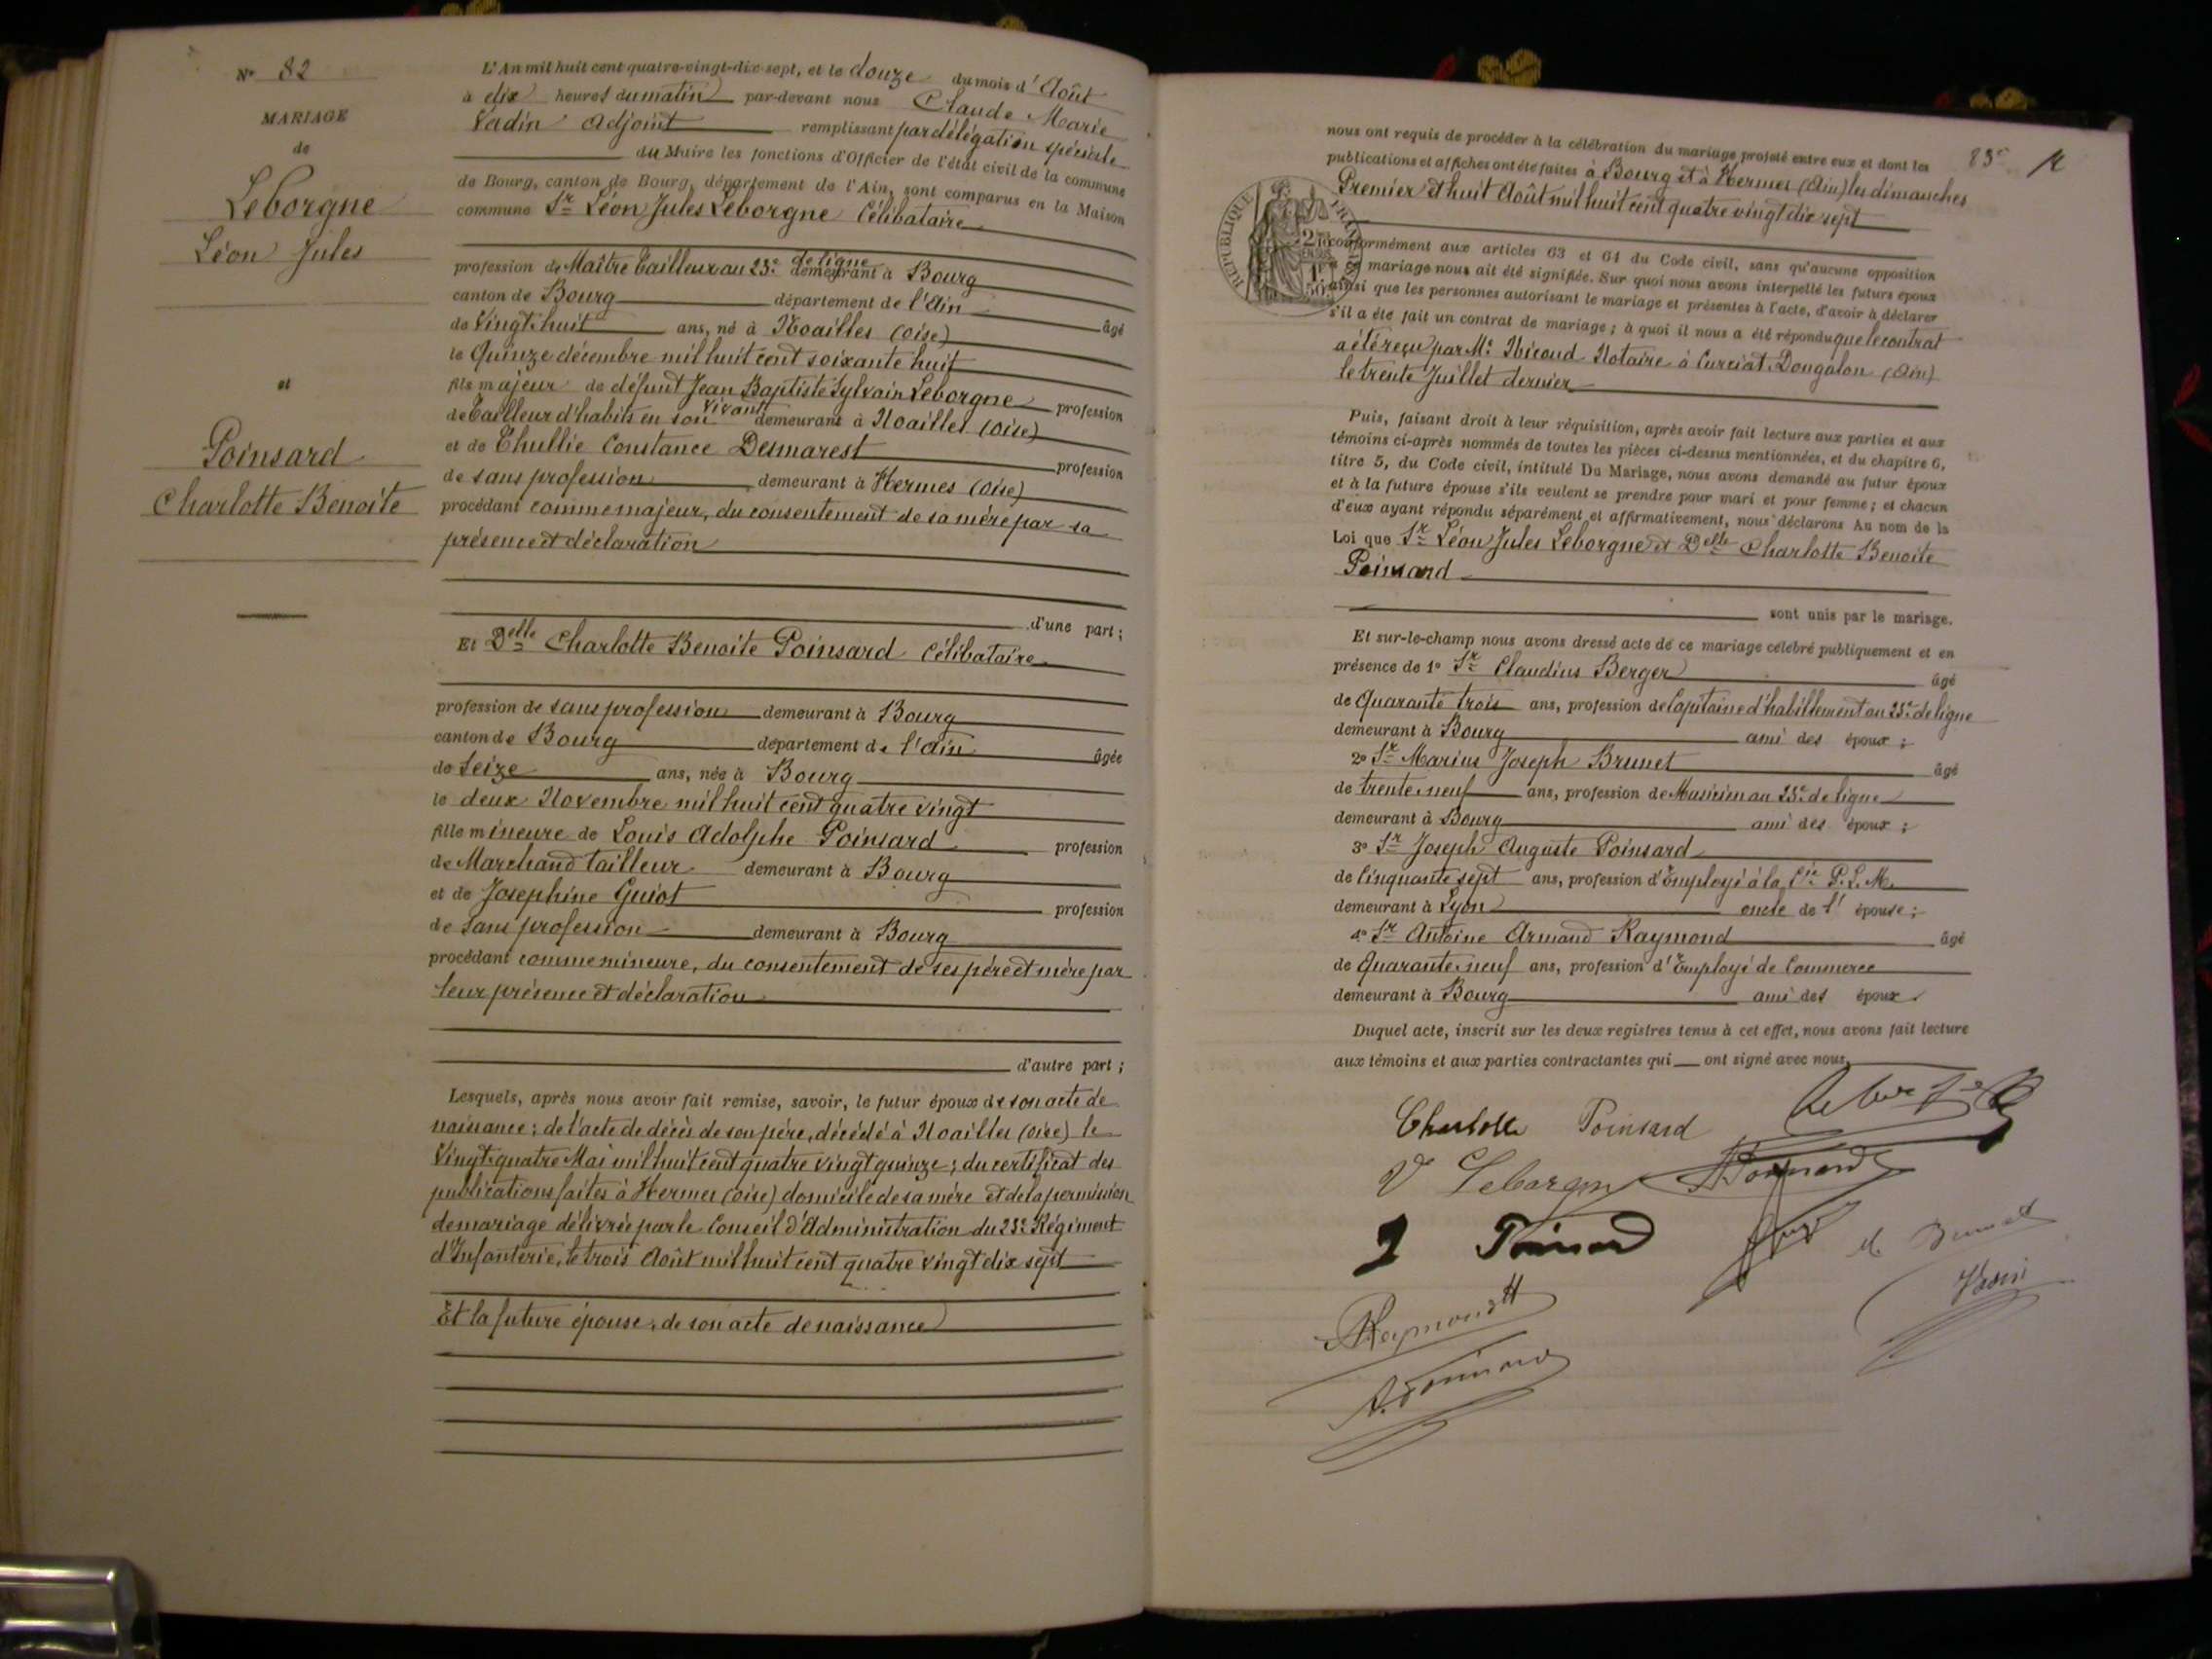 N° 82
MARIAGE
de
Leborgne
Léon Jules
et
Poinsard
Charlotte Benoite
L'An mil huit cent quatre-vingt-dix-sept, et le douze du mois d'Août
à dix heures du matin par-devant nous Claude Marie
Vadin Adjoint remplissant par délégation spéciale
du Maire les fonctions d'Officier de l'état civil de la commune
de Bourg, canton de Bourg, département de l'Ain, sont comparus en la Maison
commune Sr Léon Jules Leborgne Célibataire
profession de Maître Tailleur au 23e de ligne demeurant à Bourg
canton de Bourg département de l'Ain âgé
de Vingt-huit ans, né à Noailles (Oise)
le Quinze décembre mil huit cent soixante huit
fils majeur de défunt Jean Baptiste Sylvain Leborgne profession
de Tailleur d'habits en son vivant demeurant à Noailles (Oise)
et de Thullie Constance Desmarest profession
de sans profession demeurant à Hermes (Oise)
procédant comme majeur, du consentement de sa mère par sa
présence et déclaration
d'une part ;
Et Delle Charlotte Benoite Poinsard Célibataire
profession de sans profession demeurant à Bourg
canton de Bourg département de l'Ain âgée
de Seize ans, née à Bourg
le deux Novembre mil huit cent quatre vingt
fille mineure de Louis Adolphe Poinsard profession
de Marchand tailleur demeurant à Bourg
et de Josephine Guiot profession
de Sans profession demeurant à Bourg
procédant comme mineure, du consentement de ses père et mère par
leur présence et déclaration
d'autre part ;
Lesquels, après nous avoir fait remise, savoir, le futur époux de son acte de
naissance ; de l'acte de décès de son père, décédé à Noailles (Oise) le
Vingt-quatre Mai mil huit cent quatre vingt quinze ; du certificat des
publications faites à Hermes (Oise) domicile de sa mère et de la permission
de mariage délivrée par le Conseil d'Administration du 23e Régiment
d'Infanterie, le trois Août mil huit cent quatre vingt dix sept
Et la future épouse, de son acte de naissance
83e
nous ont requis de procéder à la célébration du mariage projeté entre eux et dont les
publications et affiches ont été faites à Bourg et à Hermes (Ain) les dimanches
Premier et huit Août mil huit cent quatre vingt dix sept
RÉPUBLIQUE FRANÇAISE
conformément aux articles 63 et 64 du Code civil, sans qu'aucune opposition
mariage nous ait été signifiée. Sur quoi nous avons interpellé les futurs époux
ainsi que les personnes autorisant le mariage et présentes à l'acte, d'avoir à déclarer
s'il a été fait un contrat de mariage ; à quoi il nous a été répondu que le contrat
a été reçu par Me Nicoud Notaire à Curciat-Dongalon (Ain)
le trente Juillet dernier
Puis, faisant droit à leur réquisition, après avoir fait lecture aux parties et aux
témoins ci-après nommés de toutes les pièces ci-dessus mentionnées, et du chapitre 6,
titre 5, du Code civil, intitulé Du Mariage, nous avons demandé au futur époux
et à la future épouse s'ils veulent se prendre pour mari et pour femme ; et chacun
d'eux ayant répondu séparément et affirmativement, nous déclarons Au nom de la
Loi que Sr Léon Jules Leborgne et Delle Charlotte Benoite
Poinsard
sont unis par le mariage.
Et sur-le-champ nous avons dressé acte de ce mariage célébré publiquement et en
présence de 1° Sr Claudius Berger âgé
de Quarante trois ans, profession de Capitaine d'habillement au 23e de ligne
demeurant à Bourg ami des époux ;
2° Sr Marius Joseph Brunet âgé
de trente-neuf ans, profession de Musicien au 23e de ligne
demeurant à Bourg ami des époux ;
3° Sr Joseph Auguste Poinsard
de Cinquante sept ans, profession d'Employé à la Cie P. L. M.
demeurant à Lyon oncle de l'épouse ;
4° Sr Antoine Armand Raymond âgé
de Quarante-neuf ans, profession d'Employé de Commerce
demeurant à Bourg ami des époux.
Duquel acte, inscrit sur les deux registres tenus à cet effet, nous avons fait lecture
aux témoins et aux parties contractantes qui ont signé avec nous.
Charlotte Poinsard
Leborgne
Poinsard
M Brunet
Raymond
Vadin
A. Poinsard